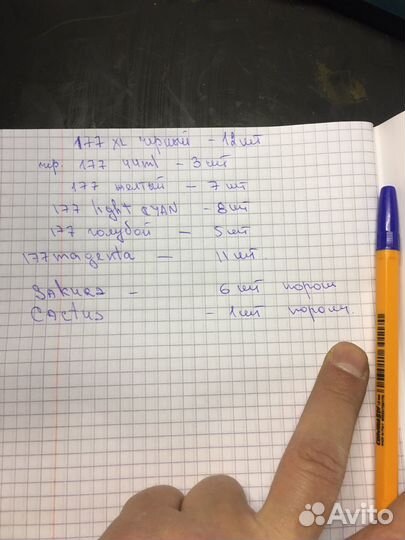 177 XL черный - 12 шт
чер. 177 44ml - 3 шт
177 желтый - 7 шт
177 light CYAN - 8 шт
177 голубой - 5 шт
177 magenta - 11 шт.
Sakura - 6 шт порош
Cactus - 1 шт порош.
Avito